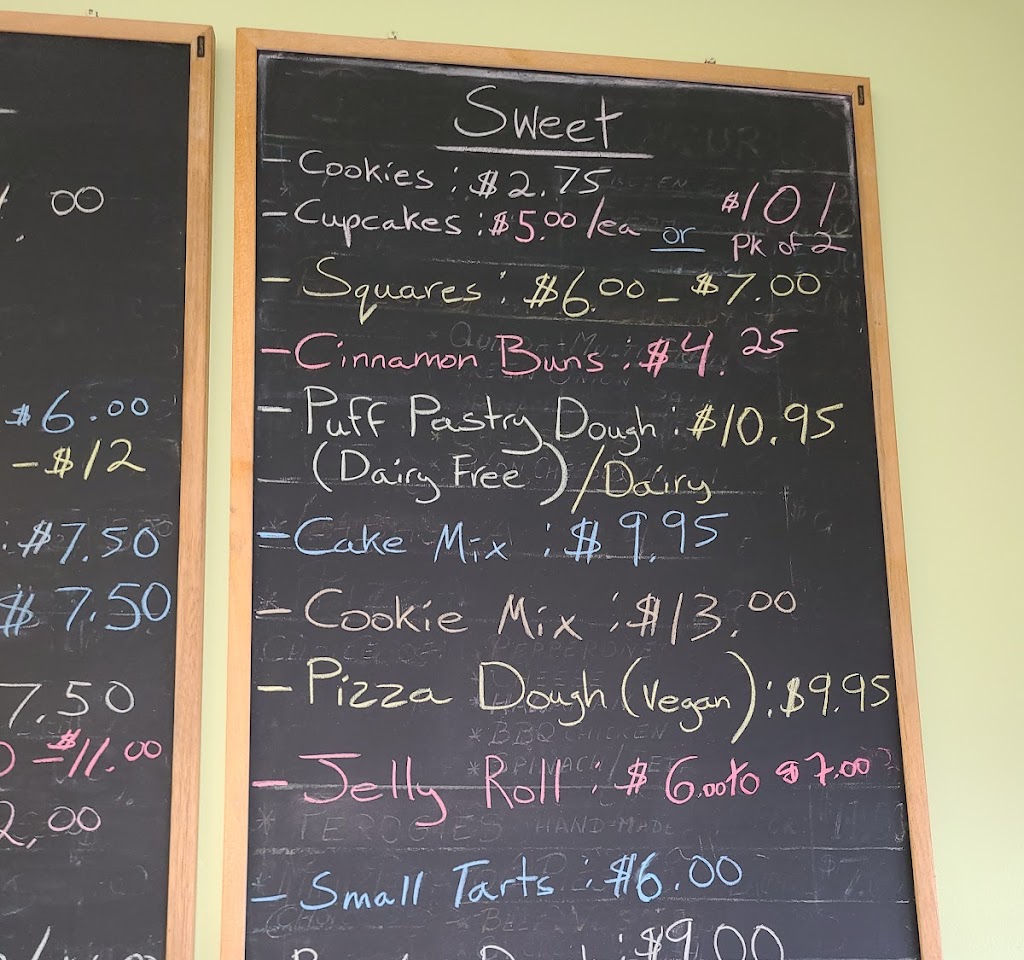 00
$6.00
- $12
: $7.50
$7.50
7.50
- $11.00
2.00
Sweet
- Cookies : $2.75
- Cupcakes : $5.00 /ea or $10 /
Pk of 2
- Squares : $6.00 - $7.00
- Cinnamon Buns : $4.25
- Puff Pastry Dough : $10.95
(Dairy Free) / Dairy
- Cake Mix : $9.95
- Cookie Mix : $13.00
- Pizza Dough (Vegan) : $9.95
- Jelly Roll : $6.00 to $7.00
- Small Tarts : $6.00
: $9.00